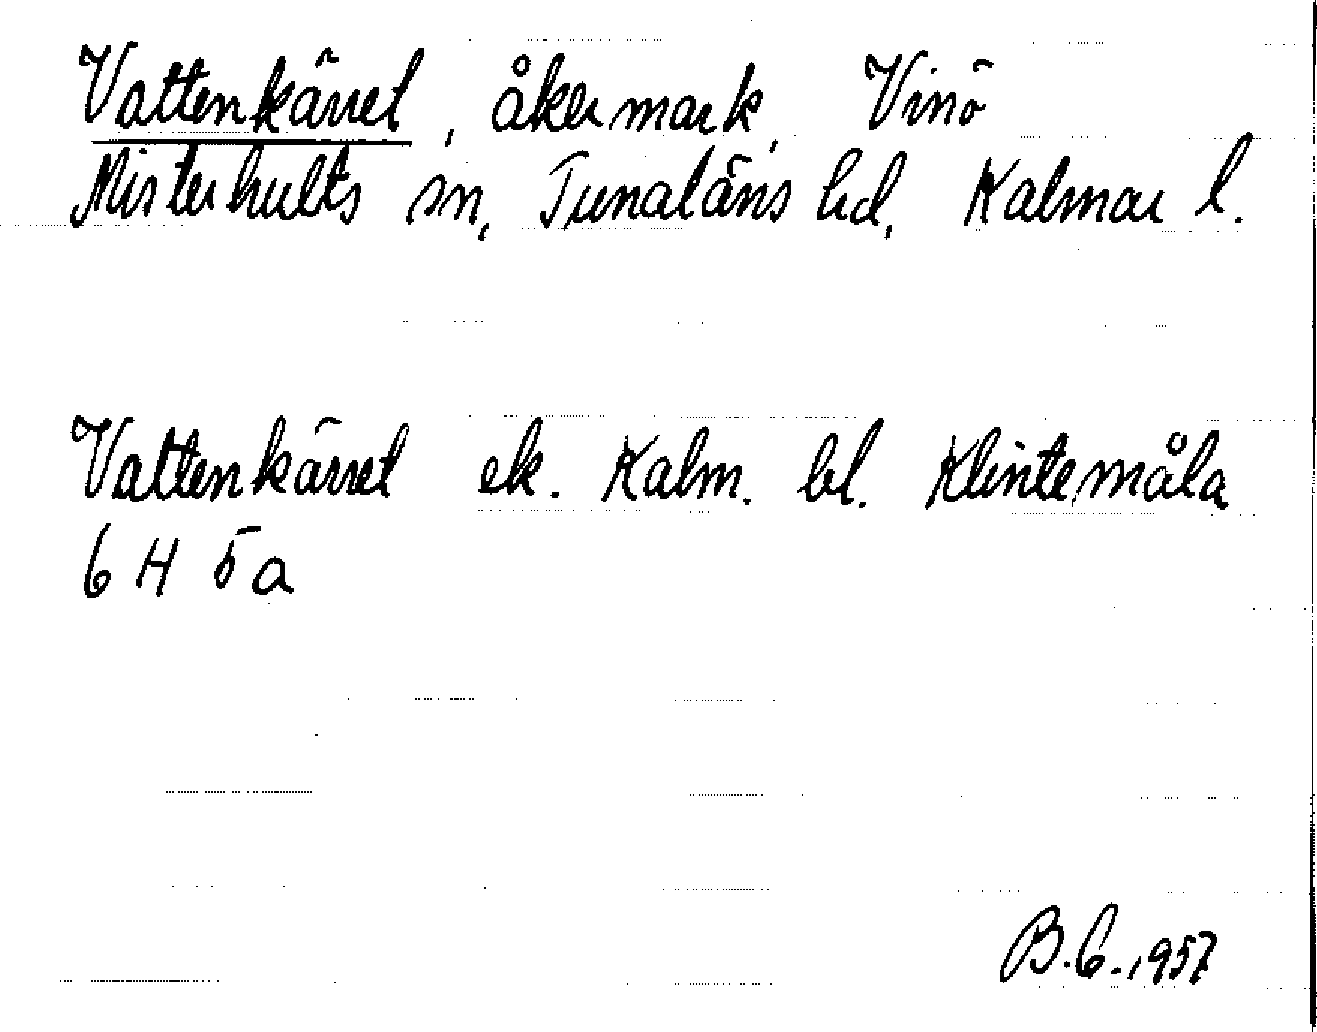 Vattenkärret, åkermark, Vinö
Misterhults sn, Tunaläns hd, Kalmar l.
Vattenkärret ek. Kalm. bl. Klintemåla
6 H 5a
B.G., 1957